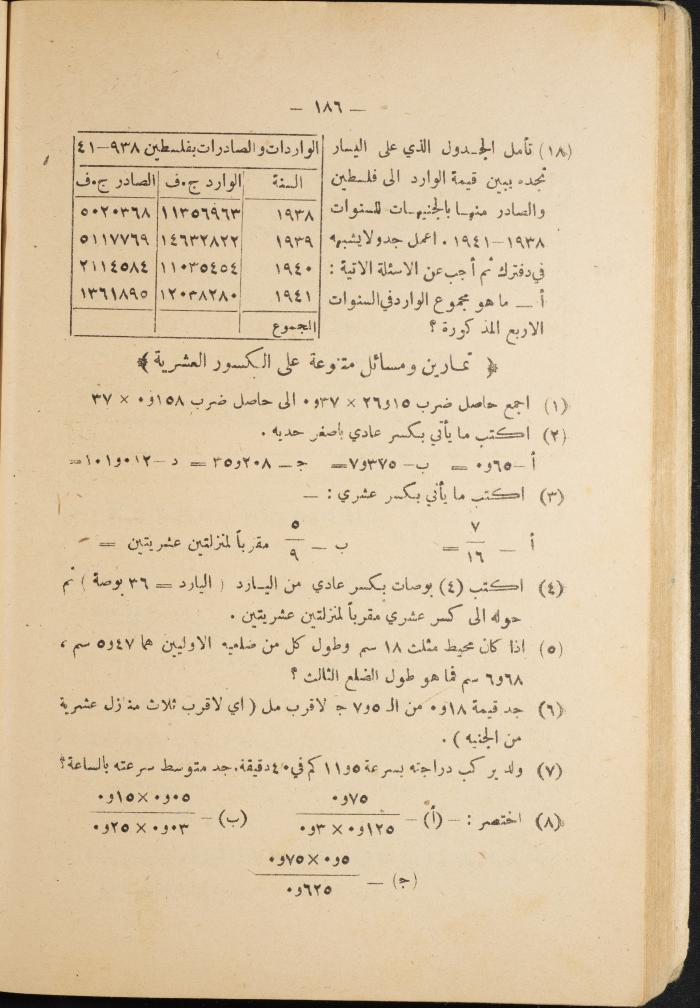 — ١٨٦ —
(١٨) تأمل الجـدول الذي على اليسار
تجده يبين قيمة الوارد الى فلسطين
والصادر منها بالجنيهات للسنوات
١٩٣٨-١٩٤١ . اعمل جدولا يشبهه
في دفترك ثم أجب عن الاسئلة الاتية :
أ — ما هو مجموع الوارد في السنوات
الاربع المذكورة ؟
الواردات والصادرات بفلسطين ٩٣٨-٤١
السنة | الوارد ج.ف | الصادر ج.ف
١٩٣٨ | ١١٣٥٦٩٦٣ | ٥٠٢٠٣٦٨
١٩٣٩ | ١٤٦٣٢٨٢٢ | ٥١١٧٧٦٩
١٩٤٠ | ١١٠٣٥٤٥٤ | ٢١١٤٥٨٤
١٩٤١ | ١٢٠٣٨٢٨٠ | ١٣٦١٨٩٥
المجموع
﴿ تمارين ومسائل متنوعة على الكسور العشرية ﴾
(١) اجمع حاصل ضرب ١٥و٢٦ × ٣٧و٠ الى حاصل ضرب ١٥٨و٠ × ٣٧
(٢) اكتب ما يأتي بكسر عادي باصغر حديه .
أ -٦٥و٠ = ب- ٣٧٥و٧= جـ - ٢٠٨و٣٥ = د -٠١٢و١٠١=
(٣) اكتب ما يأتي بكسر عشري : —
أ — ٧/١٦ = ب — ٥/٩ مقرباً لمنزلتين عشريتين =
(٤) اكتب (٤) بوصات بكسر عادي من اليـارد ( اليارد = ٣٦ بوصة ) ثم
حوله الى كسر عشري مقرباً لمنزلتين عشريتين .
(٥) اذا كان محيط مثلث ١٨ سم وطول كل من ضلعيه الاوليين هما ٤٧و٥ سم ،
٦٨و٦ سم فما هو طول الضلع الثالث ؟
(٦) جد قيمة ١٨و٠ من الـ ٥و٧ ج لاقرب مل ( اي لاقرب ثلاث منازل عشرية
من الجنيه ) .
(٧) ولد يركب دراجته بسرعة ٥و١١ كم في ٤٠ دقيقة. جد متوسط سرعته بالساعة ؟
(٨) اختصر : - (أ) - ٧٥و٠ / ١٢٥و٠ × ٣و٠ (ب) - ٠٥و٠ × ١٥و٠ / ٠٣و٠ × ٢٥و٠
(ج) - ٥و٠ × ٧٥و٠ / ٦٢٥و٠